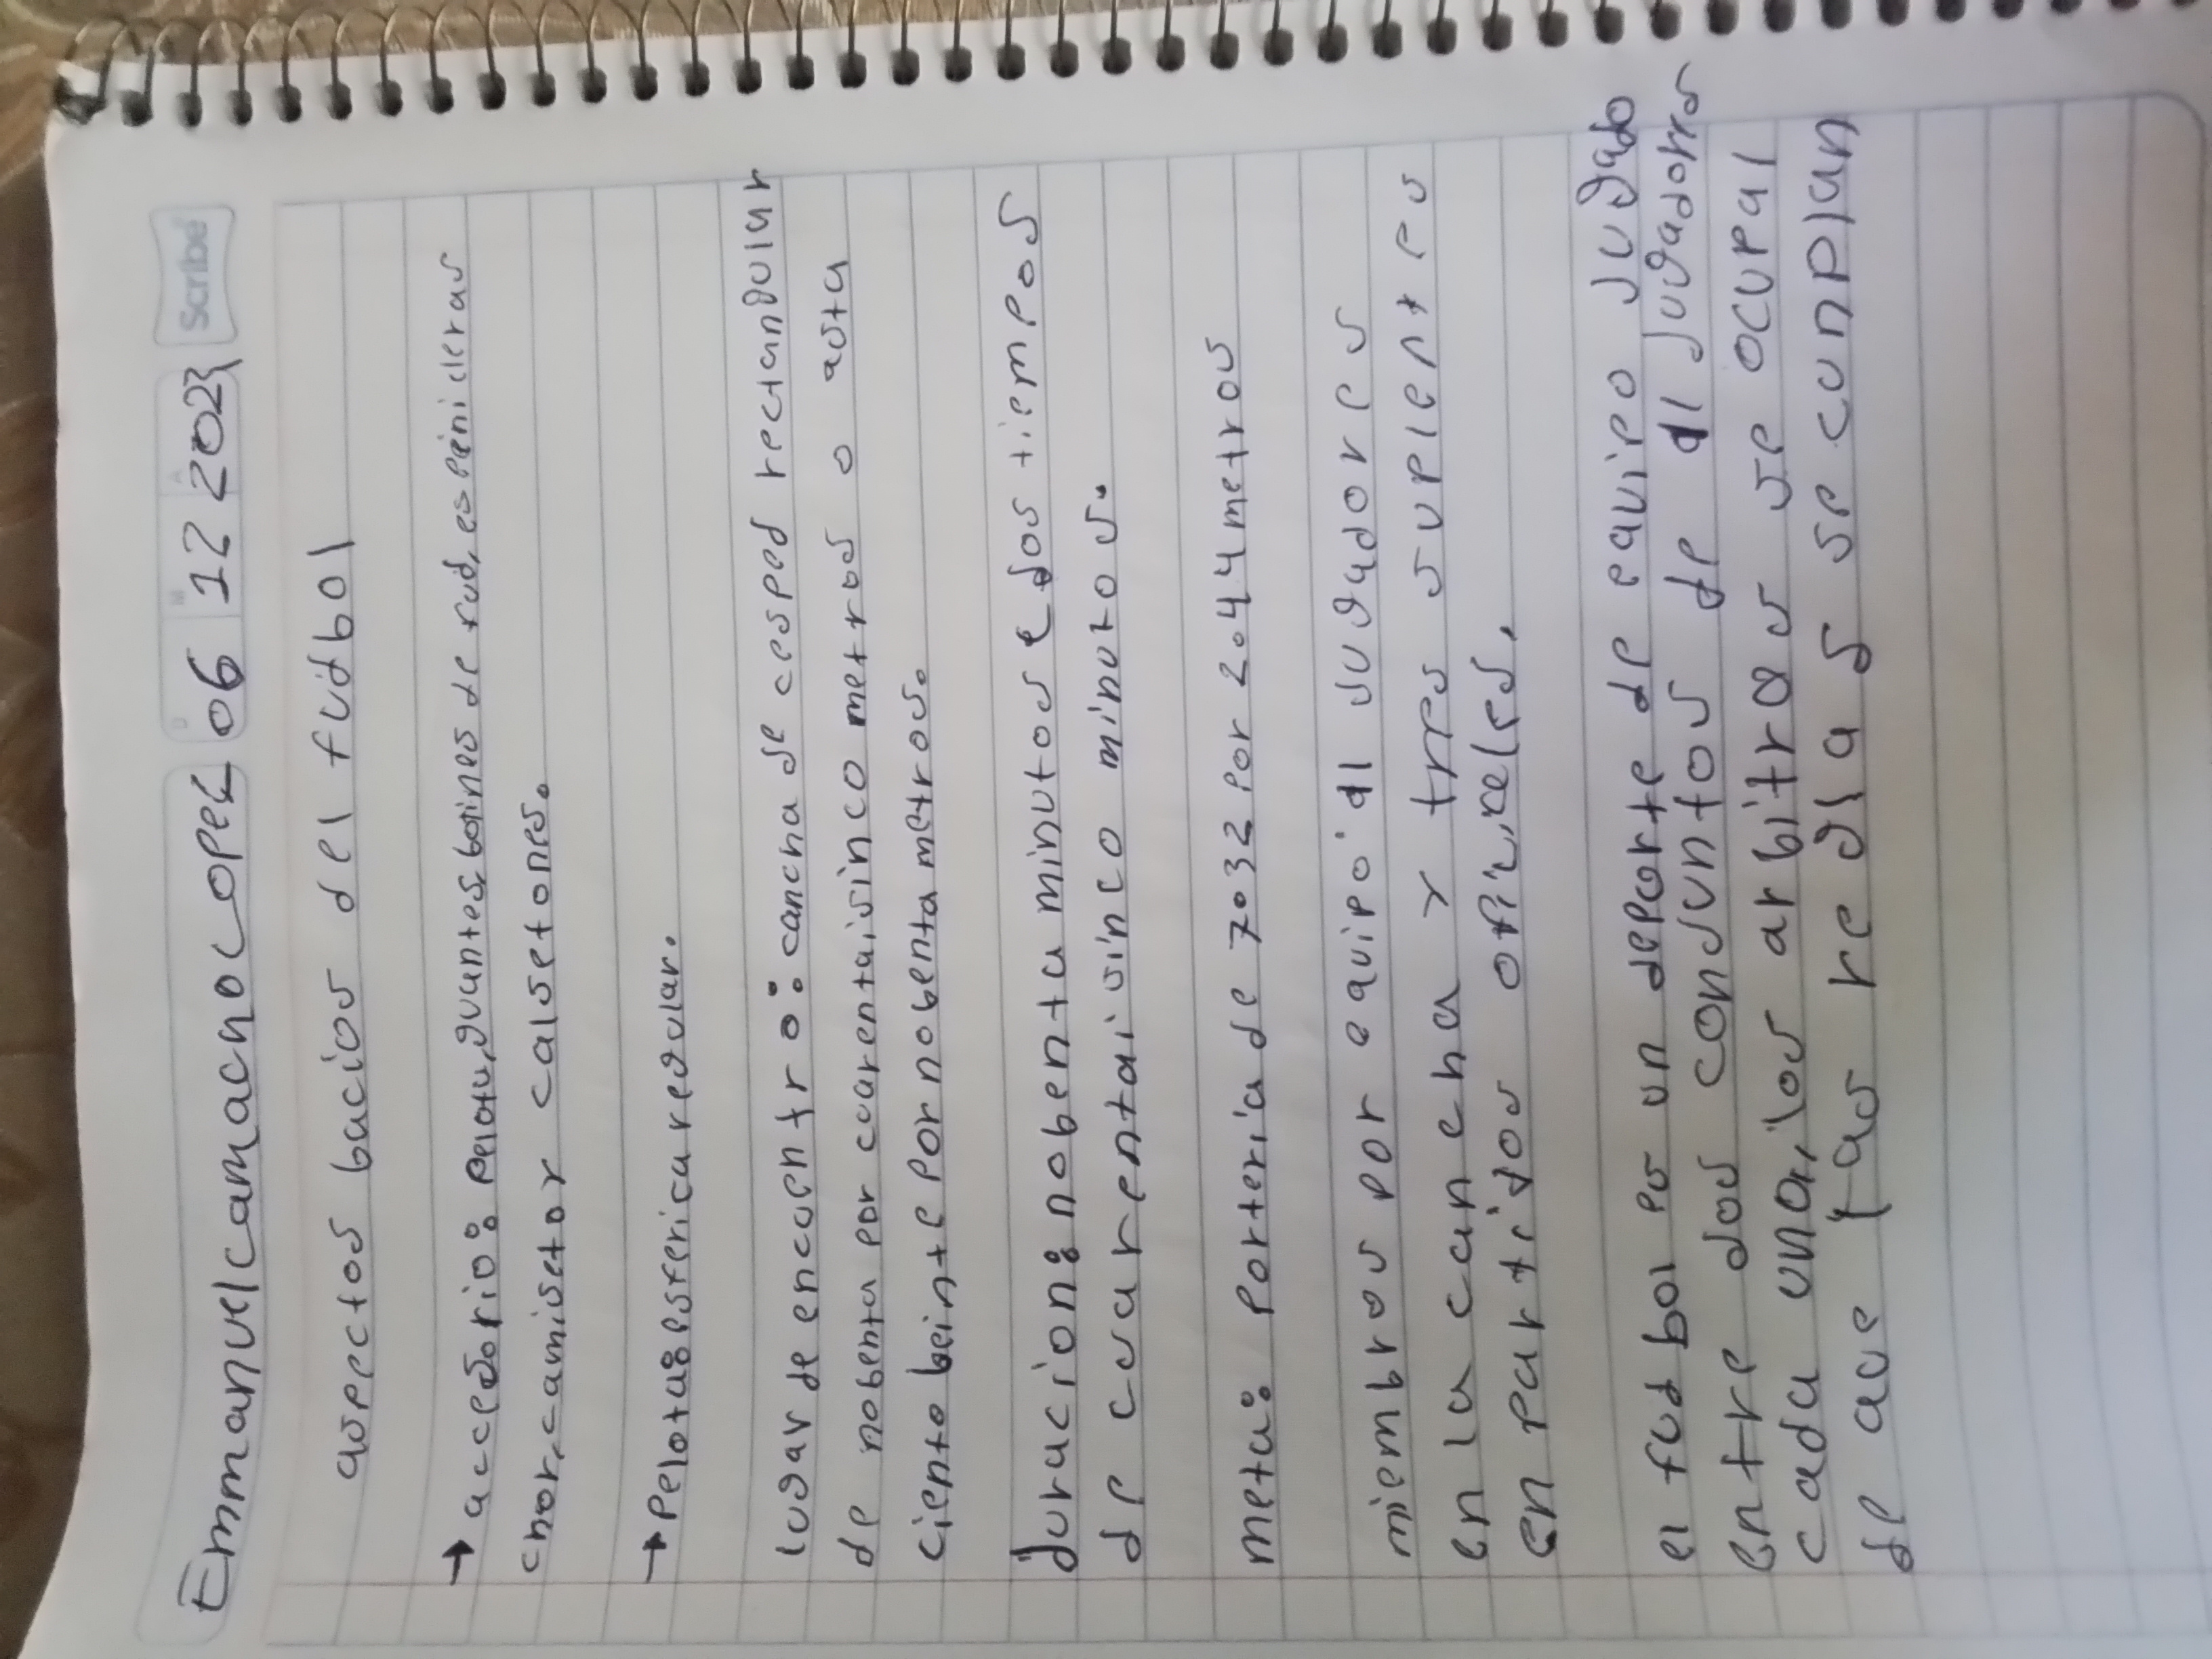 Emmanuel camacho Lopez 06 12 2023 Scribe
aspectos bacios del fudbol
→ accesorio: pelota, guantes, botines de rud, espinilleras
chor, camiseta y calsetones.
→ Pelota: esferica regular.
lugar de encuentro: cancha de cesped rectangular
de nobenta por cuarentaisinco metros o asta
ciento beinte por nobenta metros.
Duracion: nobenta minutos e dos tiempos
de cuarentaisinco minutos.
meta: porteria de 7.32 por 2.44 metros
miembros por equipo: 11 jugadores
en la cancha y tres suplentes
en partidos oficiales.
el fudbol es un deporte de equipo jugado
entre dos conjuntos de 11 jugadores
cada uno, los arbitros se ocupal
de que las reglas se cunplan